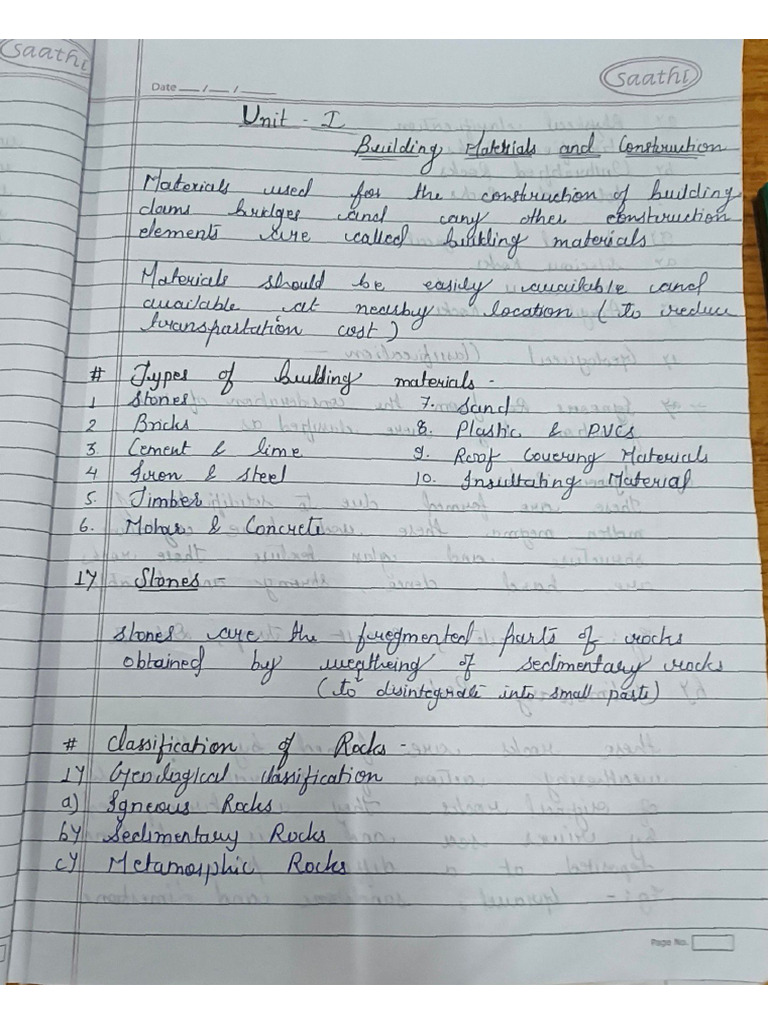 saathi
saathi
Date __/__/____
Unit - I
Building Materials and Construction
Materials used for the construction of building
dams bridges and any other construction
elements are called building materials
Materials should be easily available and
available at nearby location (to reduce
transpartation cost)
# Types of building materials -
1 Stones
2 Bricks
3. Cement & lime
4 Iron & steel
5. Timber
6. Motar & Concrete
7. Sand
8. Plastic & PVCs
9. Roof Covering Materials
10. Insultating Material
1) Stones -
Stones are the fregmented parts of rocks
obtained by weatheing of sedimentary rocks
(to disintegrate into small parts)
# Classification of Rocks -
1) Geological classification
a) Igneous Rocks
b) Sedimentary Rocks
c) Metamorphic Rocks
Page No.